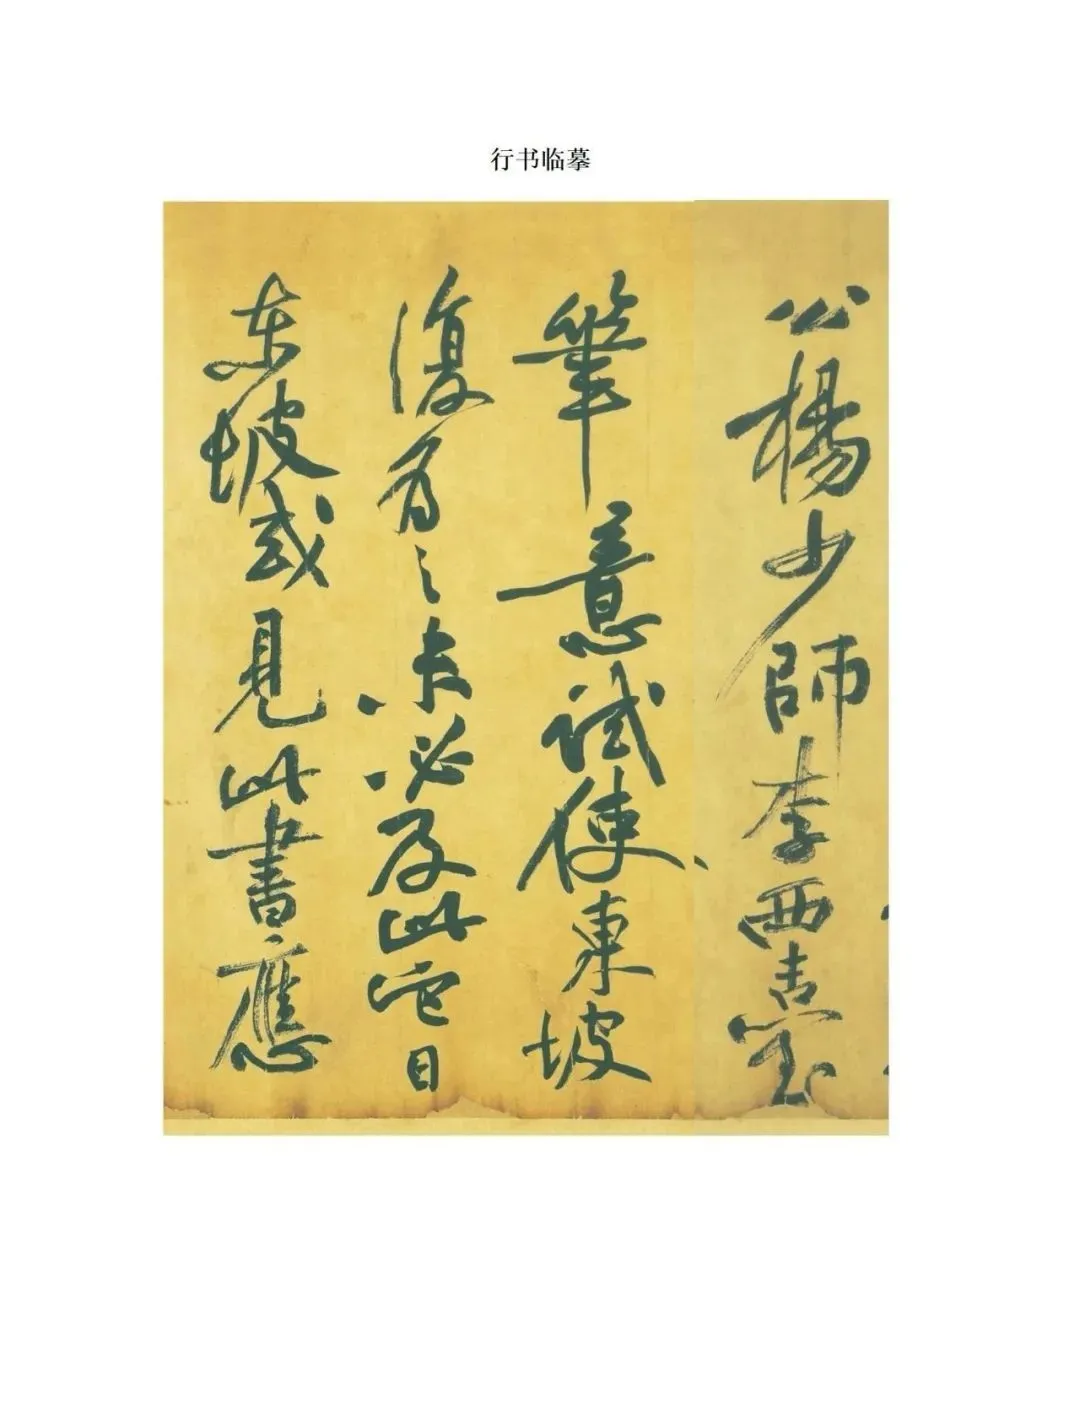 行书临摹
公楊少師李西臺
筆意試使東坡
復爲之未必及此它日
东坡或見此書應